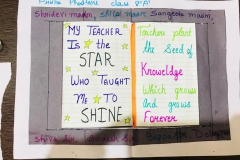 class 8th A
Shridevi madm, Shilpa maam Sangeeta maam,
MY TEACHER
Is the
STAR
WHO TAUGHT
ME TO
SHINE
Teachers plant
the Seed of
Knoweldge
Which grows
and grows
Forever